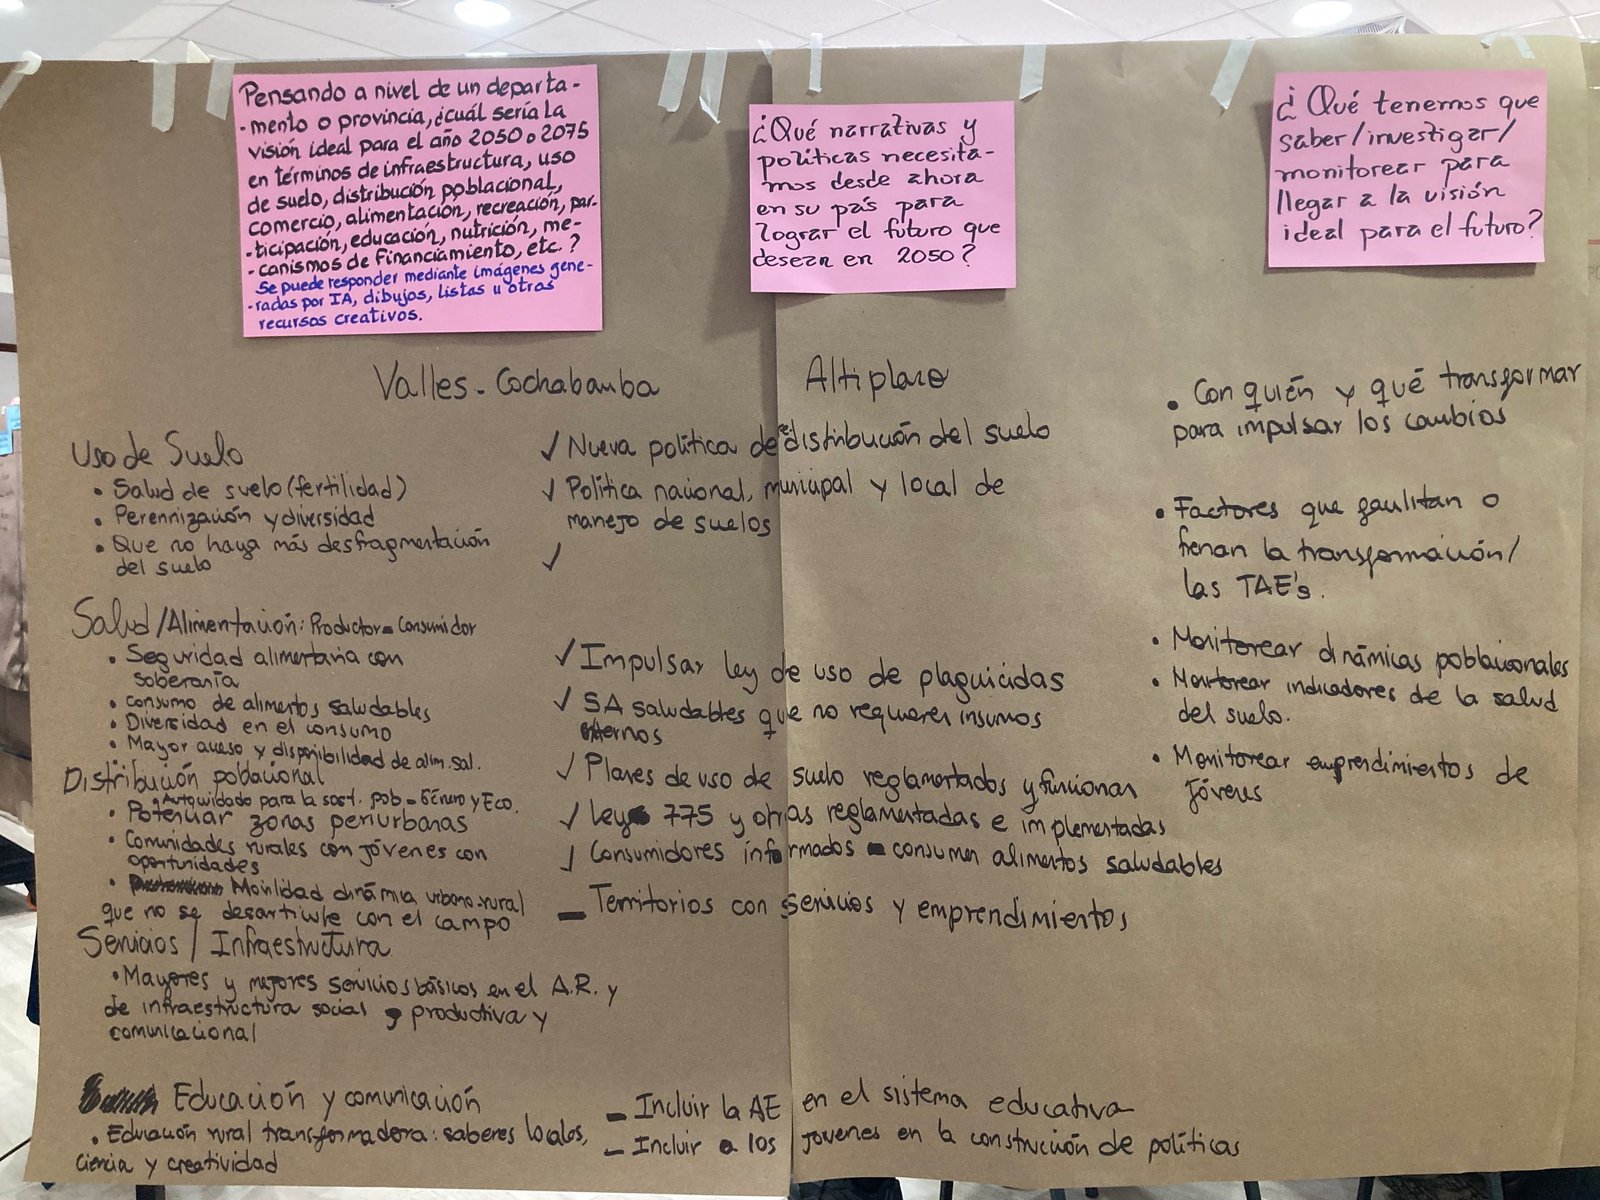 Pensando a nivel de un departa-
-mento o provincia, ¿cuál sería la
visión ideal para el año 2050 o 2075
en términos de infraestructura, uso
de suelo, distribución poblacional,
comercio, alimentación, recreación, par-
-ticipación, educación, nutrición, me-
-canismos de financiamiento, etc.?
Se puede responder mediante imágenes gene-
-radas por IA, dibujos, listas u otros
recursos creativos.
¿Qué narrativas y
políticas necesita-
mos desde ahora
en su país para
lograr el futuro que
desean en 2050?
¿Qué tenemos que
saber/investigar/
monitorear para
llegar a la visión
ideal para el futuro?
Valles - Cochabamba
Altiplano
Uso de Suelo
• Salud de suelo (fertilidad)
• Perennización y diversidad
• Que no haya más desfragmentación
del suelo
Salud/Alimentación: Productor = Consumidor
• Seguridad alimentaria con
soberanía
• Consumo de alimentos saludables
• Diversidad en el consumo
• Mayor acceso y disponibilidad de alim. sal.
Distribución poblacional
• Autocuidado para la sost. pob - Género y Eco.
• Potenciar zonas periurbanas
• Comunidades rurales con jóvenes con
oportunidades
• Movilidad dinámica urbano-rural
que no se desarticule con el campo
Servicios / Infraestructura
• Mayores y mejores servicios básicos en el A.R. y
de infraestructura social, productiva y
comunicacional
Educación y comunicación
• Educación rural transformadora: saberes locales,
ciencia y creatividad
✓ Nueva política de redistribución del suelo
✓ Política nacional, municipal y local de
manejo de suelos
✓
✓ Impulsar ley de uso de plaguicidas
✓ SA saludables que no requieren insumos
externos
✓ Planes de uso de suelo reglamentados y funcionan
✓ Ley 775 y otras reglamentadas e implementadas
✓ Consumidores informados - consumen alimentos saludables
- Territorios con servicios y emprendimientos
- Incluir la AE en el sistema educativa
- Incluir a los jovenes en la construcción de políticas
• Con quién y qué transformar
para impulsar los cambios
• Factores que facilitan o
frenan la transformación/
las TAE's.
• Monitorear dinámicas poblacionales
• Monitorear indicadores de la salud
del suelo.
• Monitorear emprendimientos de
jóvenes